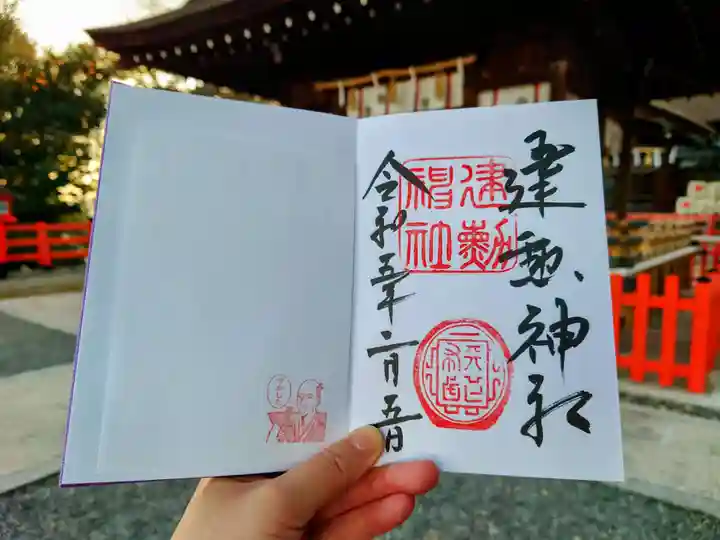 建勲神社
建勲
神社
天下布武
令和五年二月五日